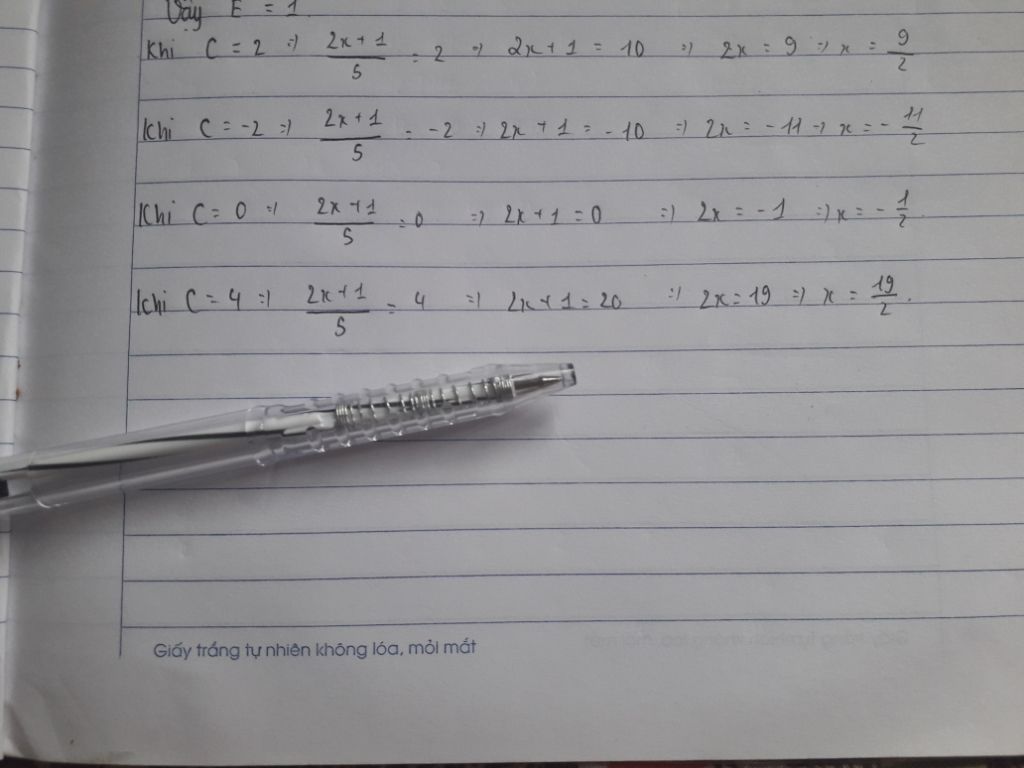 Vậy E = 1.
Khi C = 2 => (2x+1)/5 = 2 => 2x + 1 = 10 => 2x = 9 => x = 9/2
Khi C = -2 => (2x+1)/5 = -2 => 2x + 1 = -10 => 2x = -11 => x = -11/2
Khi C = 0 => (2x+1)/5 = 0 => 2x + 1 = 0 => 2x = -1 => x = -1/2.
Khi C = 4 => (2x+1)/5 = 4 => 2x + 1 = 20 => 2x = 19 => x = 19/2.
Giấy trắng tự nhiên không lóa, mỏi mắt